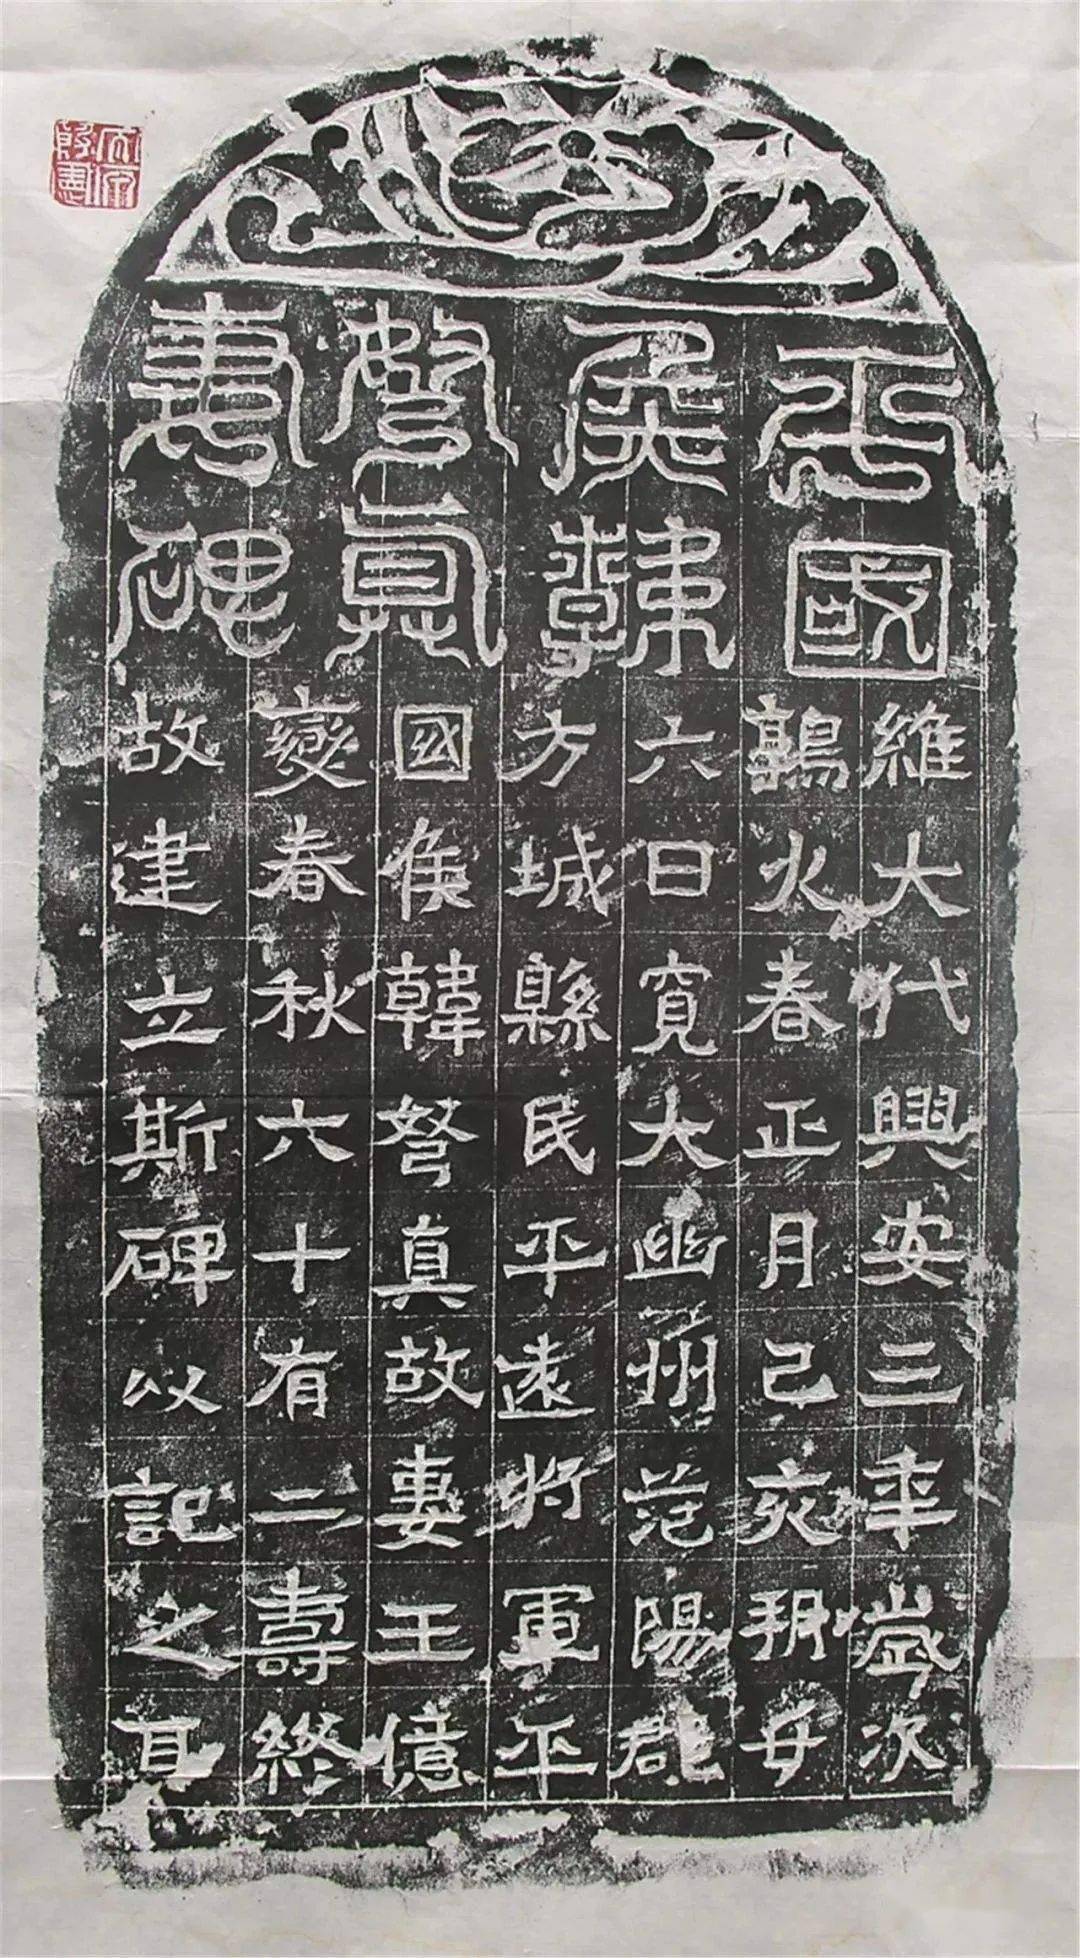 平國
侯韓
弩真
妻碑
維大代興安三年歲次
鶉火春正月己亥朔廿
六日寬大幽州范陽郡
方城縣民平遠將軍平
國侯韓弩真故妻王億
變春秋六十有二壽終
故建立斯碑以記之耳
大同
殷憲